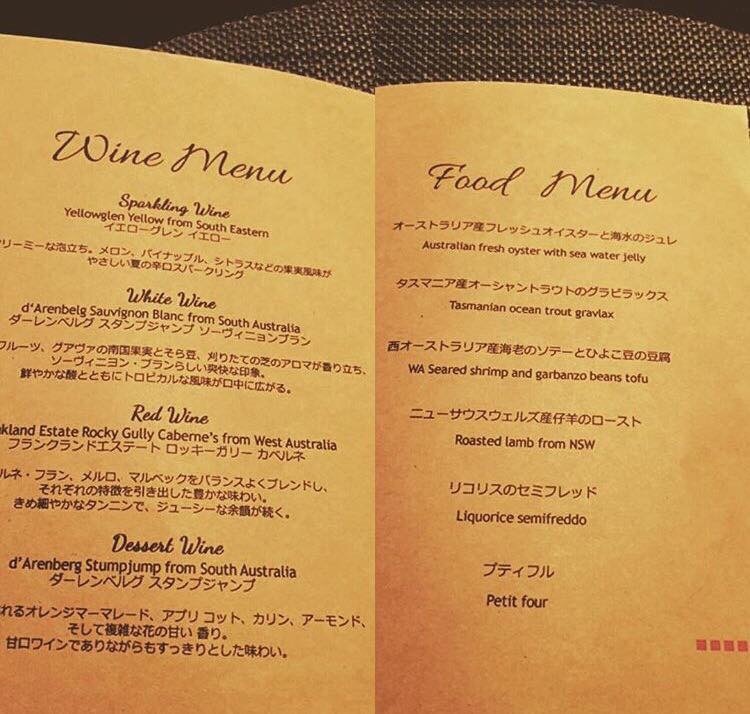 Wine Menu
Sparkling Wine
Yellowglen Yellow from South Eastern
イエローグレン イエロー
リーミーな泡立ち。メロン、パイナップル、シトラスなどの果実風味が
やさしい夏の辛口スパークリング
White Wine
d'Arenbelg Sauvignon Blanc from South Australia
ダーレンベルグ スタンプジャンプ ソーヴィニョンブラン
フルーツ、グアヴァの南国果実とそら豆、刈りたての芝のアロマが香り立ち、
ソーヴィニヨン・ブランらしい爽快な印象。
鮮やかな酸とともにトロピカルな風味が口中に広がる。
Red Wine
kland Estate Rocky Gully Caberne's from West Australia
フランクランドエステート ロッキーガリー カベルネ
ルネ・フラン、メルロ、マルベックをバランスよくブレンドし、
それぞれの特徴を引き出した豊かな味わい。
きめ細やかなタンニンで、ジューシーな余韻が続く。
Dessert Wine
d'Arenberg Stumpjump from South Australia
ダーレンベルグ スタンプジャンプ
れるオレンジマーマレード、アプリ コット、カリン、アーモンド、
そして複雑な花の甘い 香り。
甘口ワインでありながらもすっきりとした味わい。
Food Menu
オーストラリア産フレッシュオイスターと海水のジュレ
Australian fresh oyster with sea water jelly
タスマニア産オーシャントラウトのグラビラックス
Tasmanian ocean trout gravlax
西オーストラリア産海老のソテーとひよこ豆の豆腐
WA Seared shrimp and garbanzo beans tofu
ニューサウスウェルズ産仔羊のロースト
Roasted lamb from NSW
リコリスのセミフレッド
Liquorice semifreddo
プティフル
Petit four